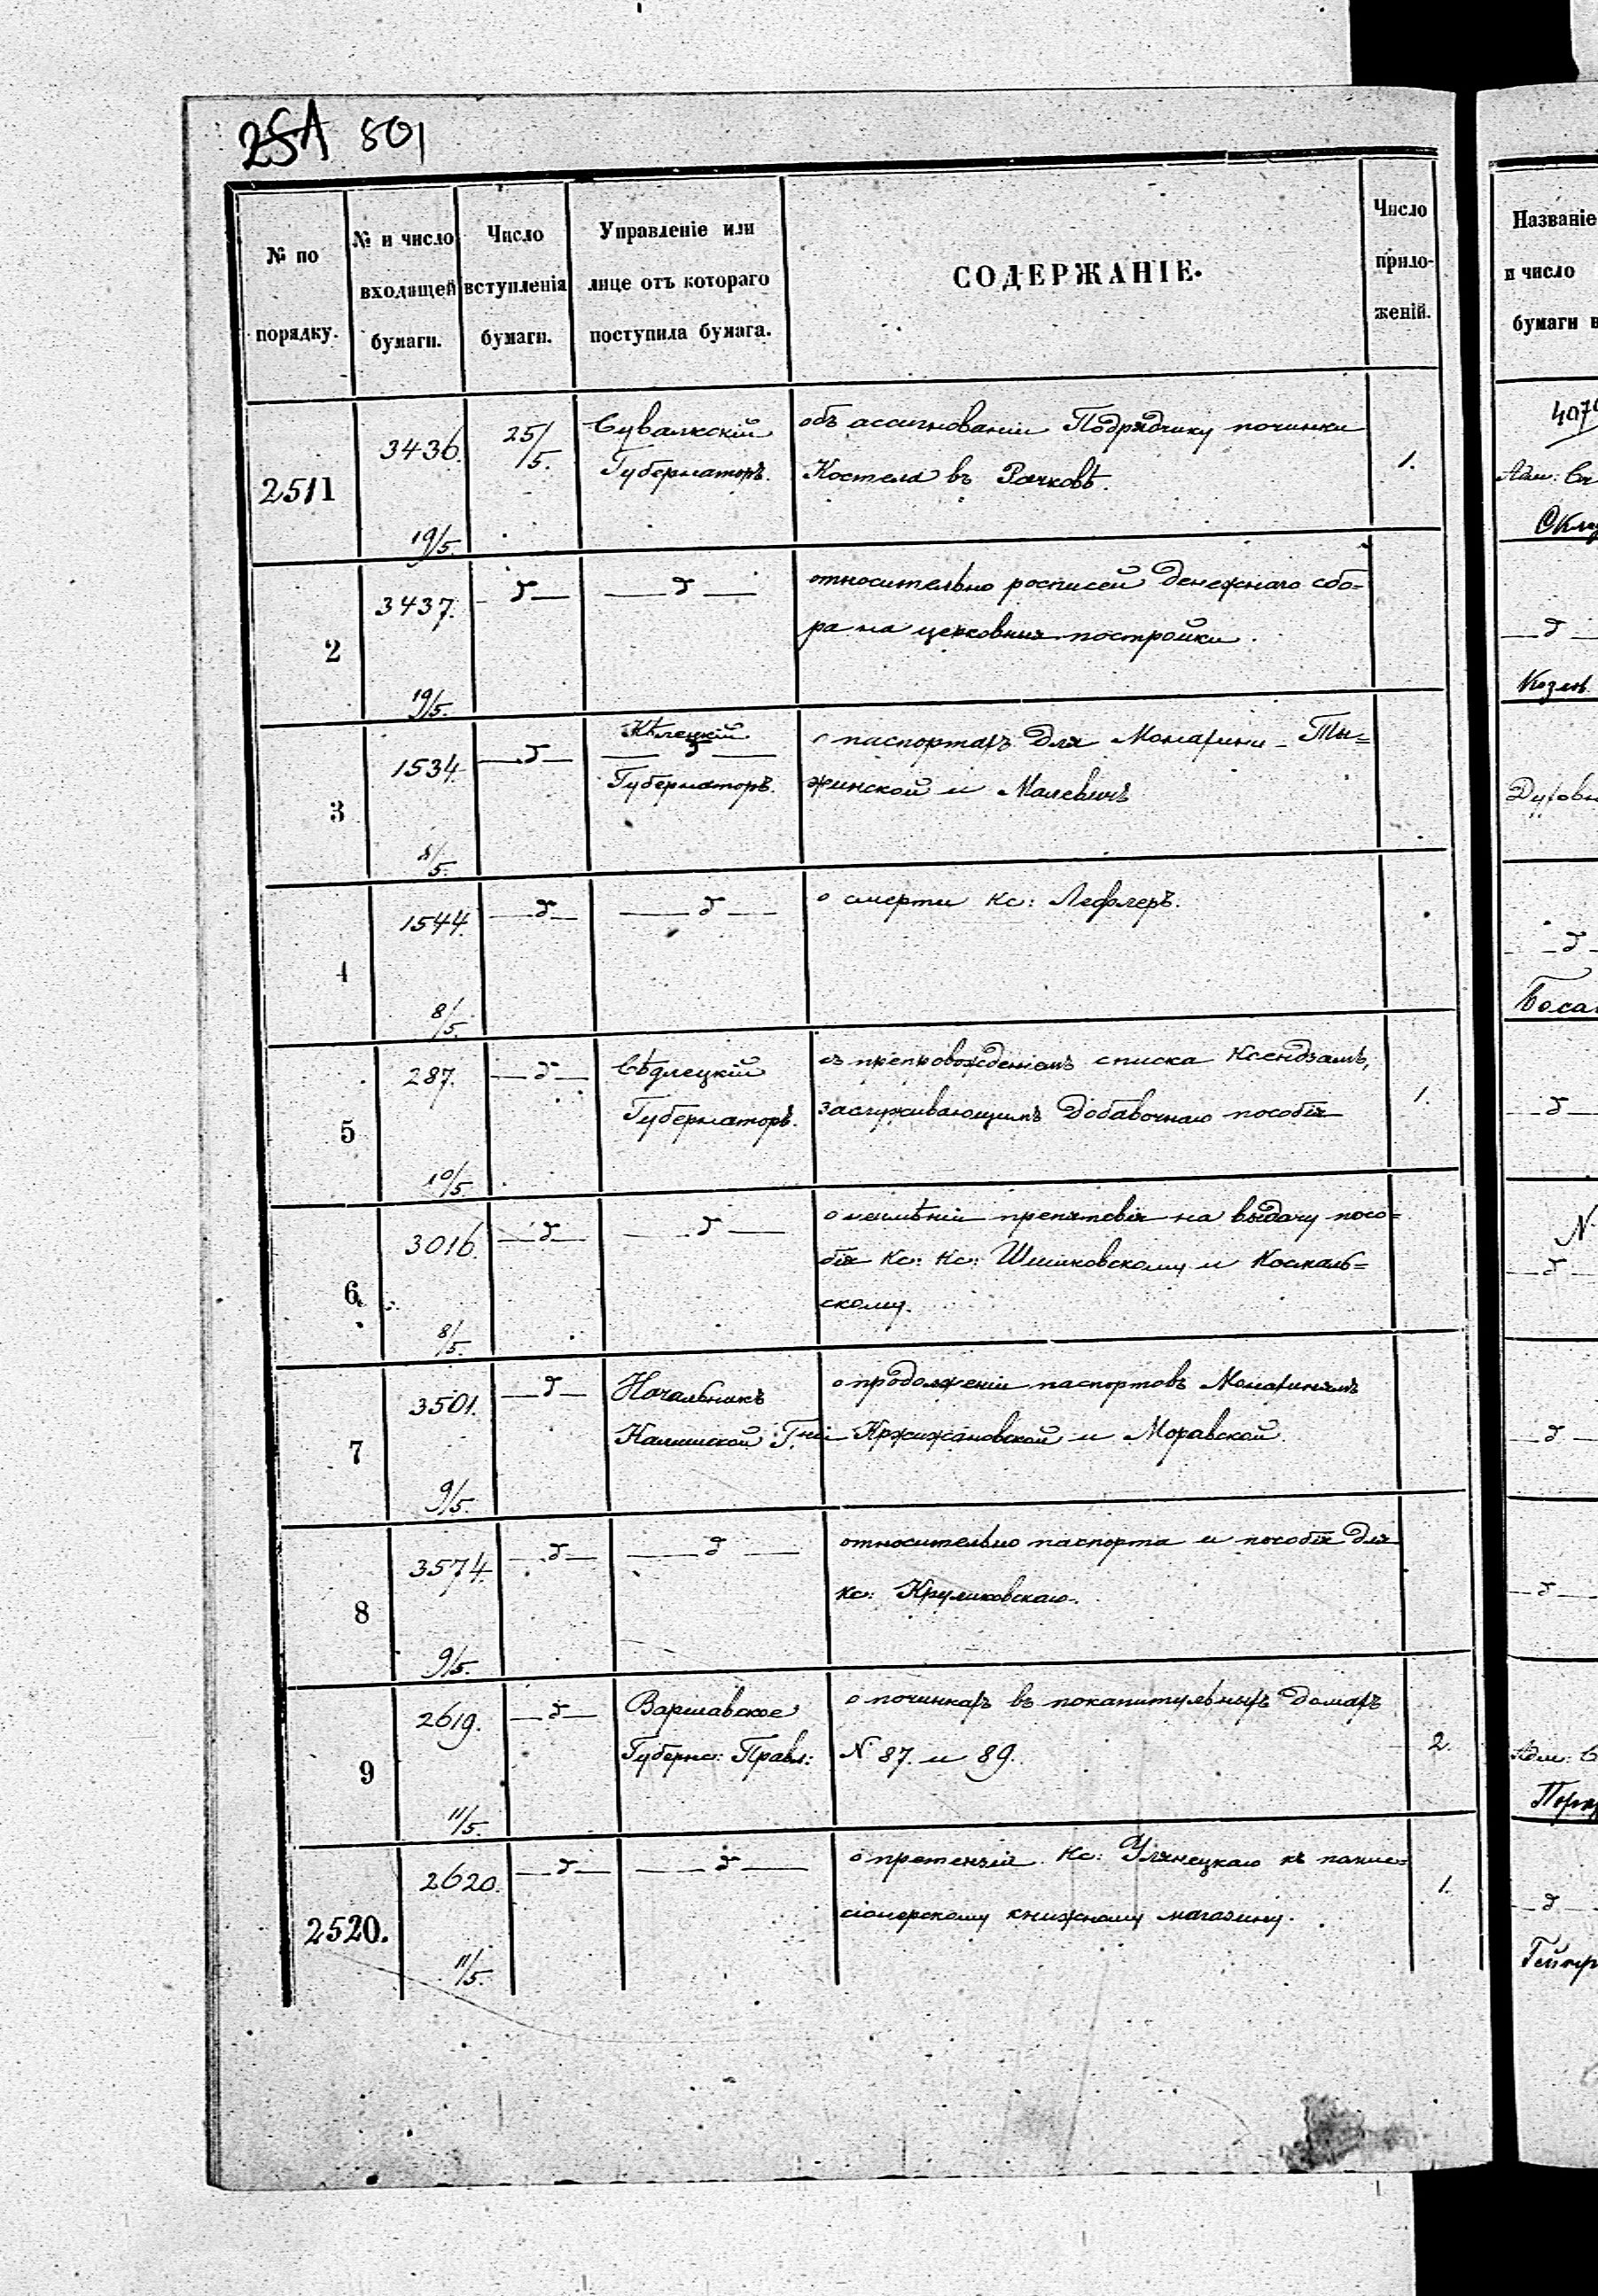 25A 501
№ по порядку.
№ и число входящей бумаги.
Число вступленія бумаги.
Управленіе или лице отъ котораго поступила бумага.
СОДЕРЖАНІЕ.
Число приложеній.
2511
3436.
19/5.
25/5.
Сувалкскій
Губернаторъ.
объ ассигнованіи Подрядчику починки
Костела въ Рачковѣ.
1.
2
3437.
19/5.
— д —
— д —
относительно росписей денежнаго сбо=
ра на церковныя постройки.
3
1534.
8/5.
— д —
Кѣлецкій
— д —
Губернаторъ.
о паспортахъ для Монахини - Ты=
жинской и Малевичъ
4
1544.
8/5.
— д —
— д —
о смерти Кс: Лефлеръ.
5
287.
10/5.
— д —
Сѣдлецкій
Губернаторъ.
съ препровожденіемъ списка Ксендзамъ,
заслуживающимъ добавочнаго пособія
1.
6.
3016.
8/5.
— д —
— д —
о неимѣніи препятствія на выдачу посо=
бія Кс: Кс: и
скому.
7
3501.
9/5.
— д —
Начальникъ
Калишской Г.ніи
о продолженіи паспортовъ Монахинямъ
Кржижановской и Моравской.
8
3574.
9/5.
— д —
— д —
относительно паспорта и пособія для
Кс: Круликовскаго.
9
2619.
11/5.
— д —
Варшавское
Губернс: Правл:
о починкахъ въ покапитульныхъ домахъ
N. 87. и 89.
2.
2520.
2620.
11/5.
— д —
— д —
о претензіи Кс: Улянецкаго къ
книжному магазину.
1.
Названіе
и число
бумаги в
Адм:
— д —
Духовн
— д —
— д —
N.
— д —
— д —
— д —
Адм: С
— д —